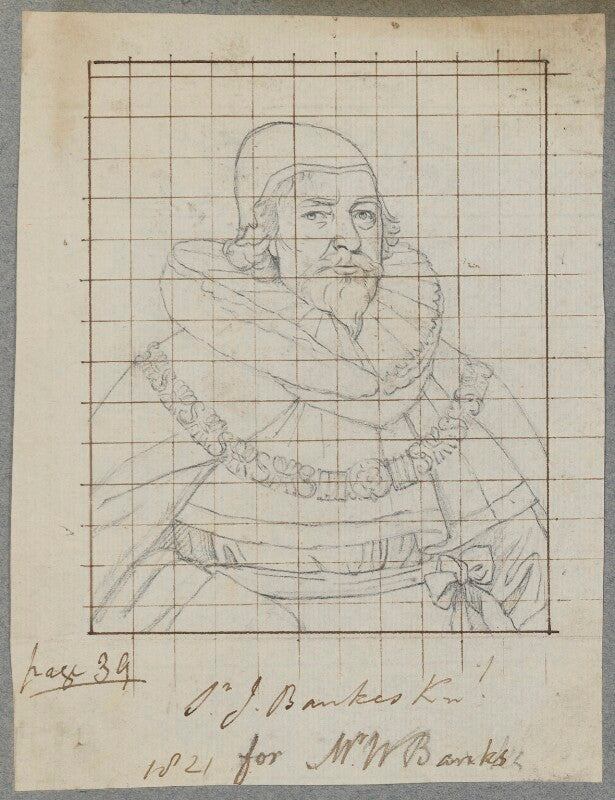 page 39
Sr. J. Bankes Knt
1821 for Mr W Bankes